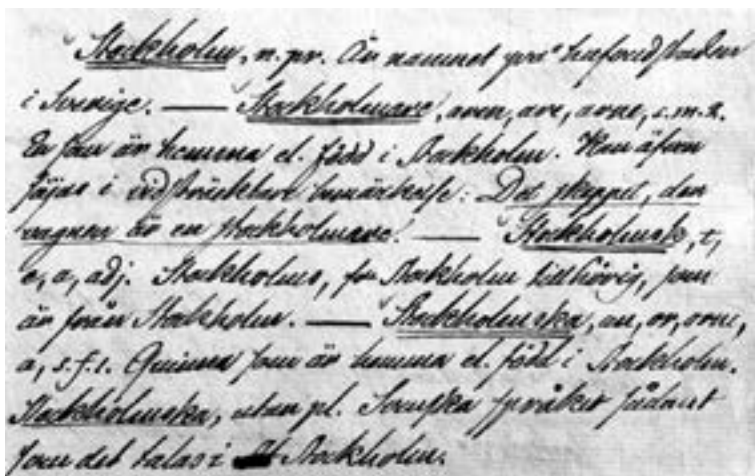 Stockholm, n. pr. Är namnet på hufvudstaden
i Sverige. — Stockholmare, aren, are, arne, s. m. 2.
En som är hemma el. född i Stockholm. Kan äfven
säjas i vidsträcktare bemärkelse: Det skeppet, den
vagnen är en stockholmare. — Stockholmsk, t,
e, a, adj. Stockholms, Stockholm tillhörig, som
är från Stockholm. — Stockholmska, an, or, orne,
a, s. f. 1. Quinna som är hemma el. född i Stockholm.
Stockholmska, utan pl. Svenska språket sådant
som det talas i Stockholm.